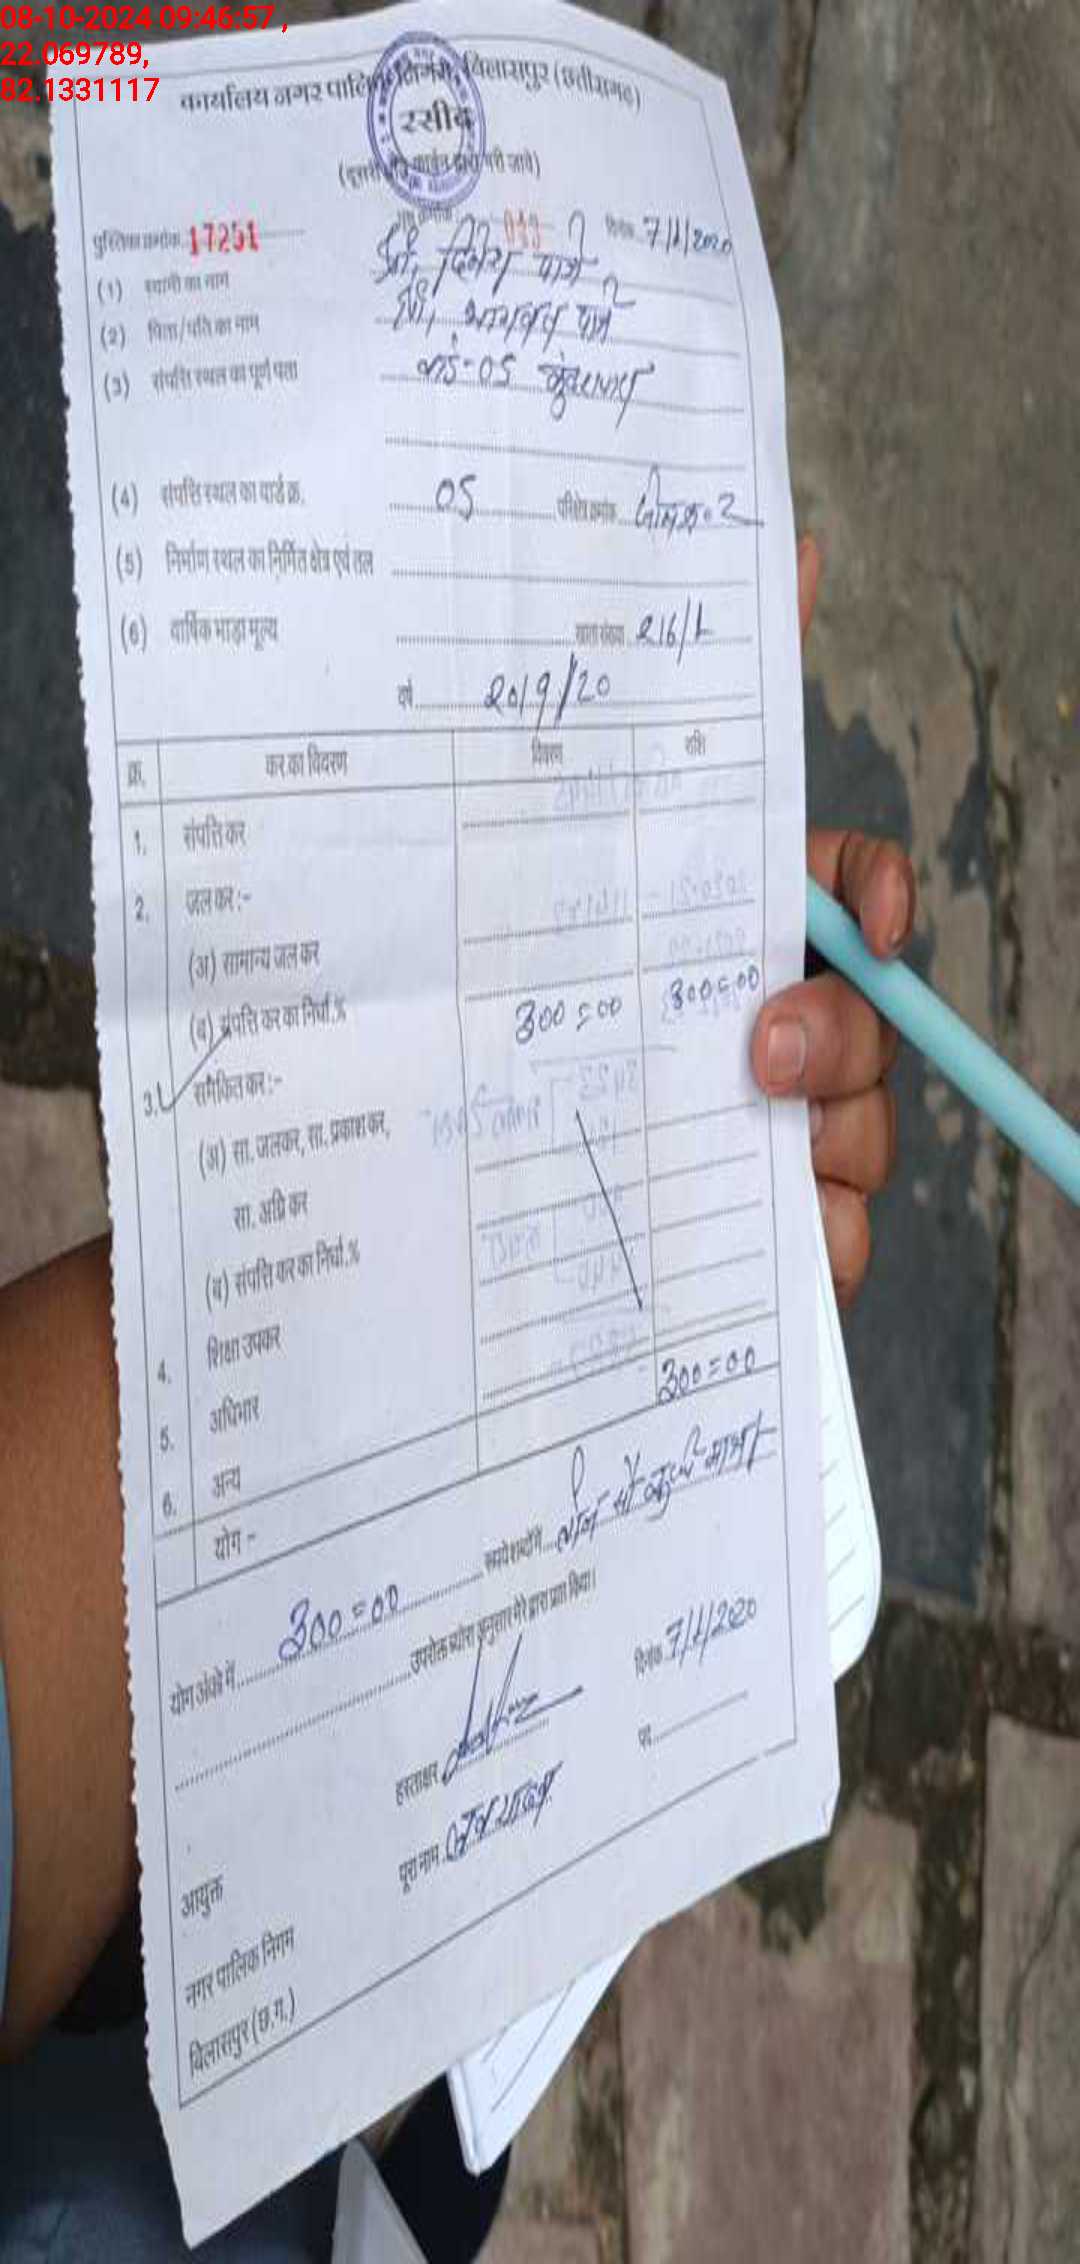 08-10-2024 09:46:57 ,
22.069789,
82.1331117
कार्यालय नगर पालिक निगम, बिलासपुर (छत्तीसगढ़)
रसीद
पुस्तिका क्रमांक 17251 043 दिनांक 7/1/2020
(1) स्वामी का नाम श्री, दिनेश पात्रे
(2) पिता/पति का नाम
(3) संपत्ति स्थल का पूर्ण पता वार्ड-05
(4) संपत्ति स्थल का वार्ड क्र. 05 परिक्षेत्र क्रमांक जोन क्र.-2
(5) निर्माण स्थल का निर्मित क्षेत्र एवं तल
(6) वार्षिक भाड़ा मूल्य खाता संख्या 216/1
वर्ष 2019/20
क्र. कर का विवरण विवरण राशि
1. संपत्ति कर
2. जल कर :-
(अ) सामान्य जल कर
(ब) संपत्ति कर का निर्धा.% 300=00 300=00
3. समेकित कर :-
(अ) सा. जलकर, सा. प्रकाश कर,
सा. अग्नि कर
(ब) संपत्ति कर का निर्धा.%
4. शिक्षा उपकर
5. अधिभार
6. अन्य
योग - 300=00
योग अंको में 300=00 रूपये शब्दों में तीन सौ रूपये मात्र
उपरोक्त ब्योरा अनुसार मेरे द्वारा प्राप्त किया।
हस्ताक्षर दिनांक 7/1/2020
पूरा नाम पद
आयुक्त
नगर पालिक निगम
बिलासपुर (छ.ग.)